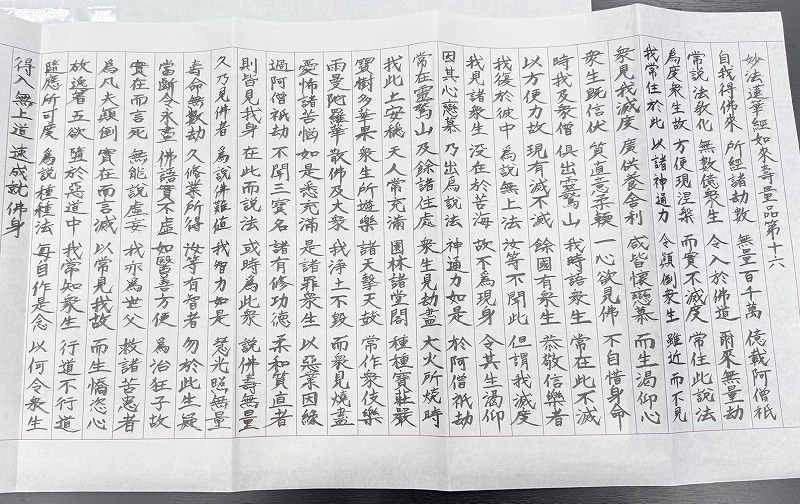 妙法蓮華經如來壽量品第十六
自我得佛來 所經諸劫數 無量百千萬 億載阿僧祇
常説法教化 無數億衆生 令入於佛道 爾來無量劫
為度衆生故 方便現涅槃 而實不滅度 常住此説法
我常住於此 以諸神通力 令顛倒衆生 雖近而不見
衆見我滅度 廣供養舎利 咸皆懐戀慕 而生渇仰心
衆生既信伏 質直意柔軟 一心欲見佛 不自惜身命
時我及衆僧 俱出靈鷲山 我時語衆生 常在此不滅
以方便力故 現有滅不滅 餘國有衆生 恭敬信樂者
我復於彼中 為説無上法 汝等不聞此 但謂我滅度
我見諸衆生 没在於苦海 故不為現身 令其生渇仰
因其心戀慕 乃出為説法 神通力如是 於阿僧祇劫
常在靈鷲山 及餘諸住處 衆生見劫盡 大火所燒時
我此土安穏 天人常充滿 園林諸堂閣 種種寶莊嚴
寶樹多華果 衆生所遊樂 諸天撃天鼓 常作衆伎樂
雨曼陀羅華 散佛及大衆 我浄土不毀 而衆見燒盡
憂怖諸苦惱 如是悉充滿 是諸罪衆生 以惡業因縁
過阿僧祇劫 不聞三寶名 諸有修功德 柔和質直者
則皆見我身 在此而説法 或時為此衆 説佛壽無量
久乃見佛者 為説佛難値 我智力如是 慧光照無量
壽命無數劫 久修業所得 汝等有智者 勿於此生疑
當斷令永盡 佛語實不虚 如醫善方便 為治狂子故
實在而言死 無能説虚妄 我亦為世父 救諸苦患者
為凡夫顛倒 實在而言滅 以常見我故 而生憍恣心
放逸著五欲 墮於惡道中 我常知衆生 行道不行道
隨應所可度 為説種種法 毎自作是念 以何令衆生
得入無上道 速成就佛身